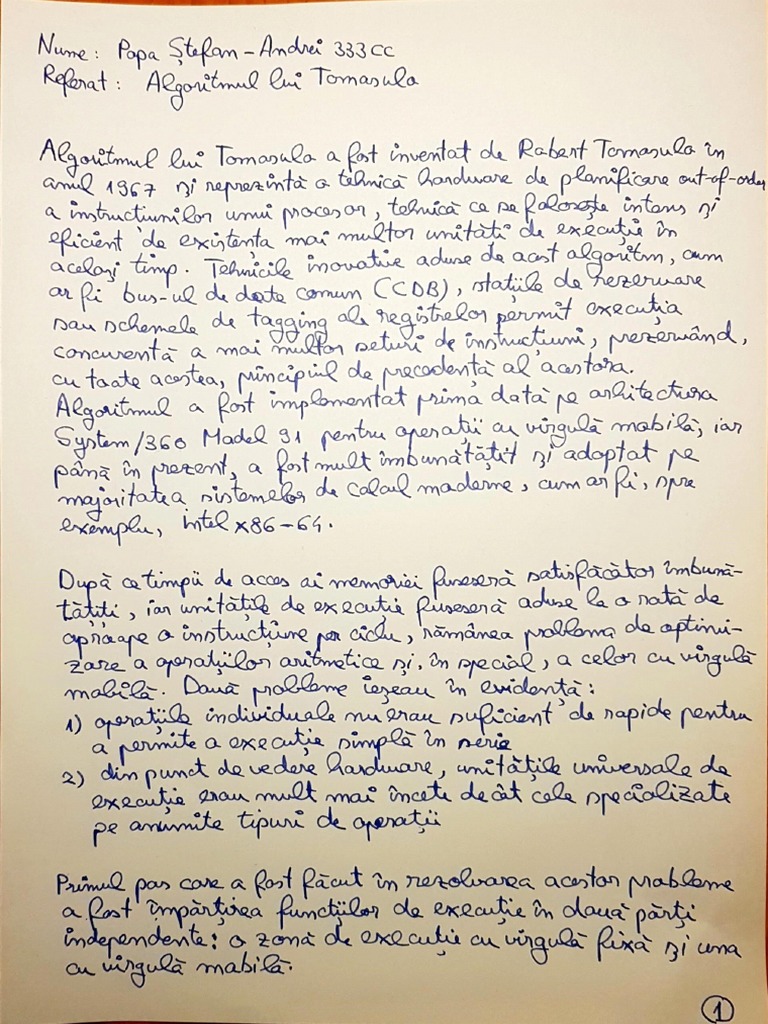 Nume: Popa Ștefan-Andrei 333CC
Referat: Algoritmul lui Tomasulo
Algoritmul lui Tomasulo a fost inventat de Robert Tomasulo în
anul 1967 și reprezintă o tehnică hardware de planificare out-of-order
a instrucțiunilor unui procesor, tehnică ce se folosește intens și
eficient de existența mai multor unități de execuție în
același timp. Tehnicile inovative aduse de acest algoritm, cum
ar fi bus-ul de date comun (CDB), stațiile de rezervare
sau schemele de tagging ale registrelor permit execuția
concurentă a mai multor seturi de instrucțiuni, prezervând,
cu toate acestea, principiul de precedență al acestora.
Algoritmul a fost implementat prima dată pe arhitectura
System/360 Model 91 pentru operații cu virgulă mobilă, iar
până în prezent, a fost mult îmbunătățit și adoptat pe
majoritatea sistemelor de calcul moderne, cum ar fi, spre
exemplu, intel x86-64.
După ce timpii de acces ai memoriei fuseseră satisfăcător îmbună-
tățiți, iar unitățile de execuție fuseseră aduse la o rată de
aproape o instrucțiune per ciclu, rămânea problema de optimi-
zare a operațiilor aritmetice și, în special, a celor cu virgulă
mobilă. Două probleme ieșeau în evidență:
1) operațiile individuale nu erau suficient de rapide pentru
a permite o execuție simplă în serie
2) din punct de vedere hardware, unitățile universale de
execuție erau mult mai încete decât cele specializate
pe anumite tipuri de operații
Primul pas care a fost făcut în rezolvarea acestor probleme
a fost împărțirea funcțiilor de execuție în două părți
independente: o zonă de execuție cu virgulă fixă și una
cu virgulă mobilă.
1